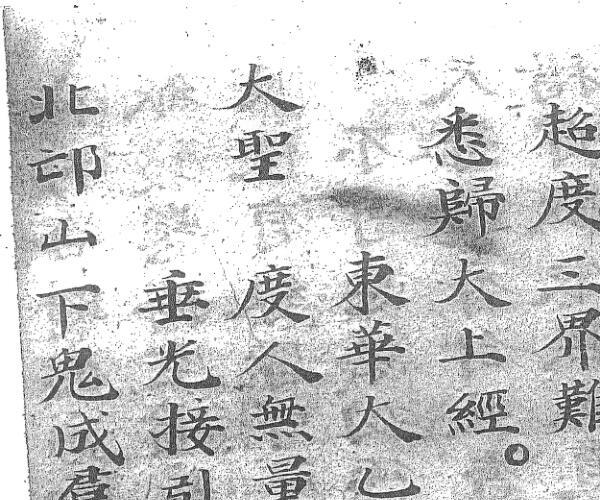 超度三界難
悉歸大上經。
東華大乙
大聖度人無量
垂光接引
北邙山下鬼成群